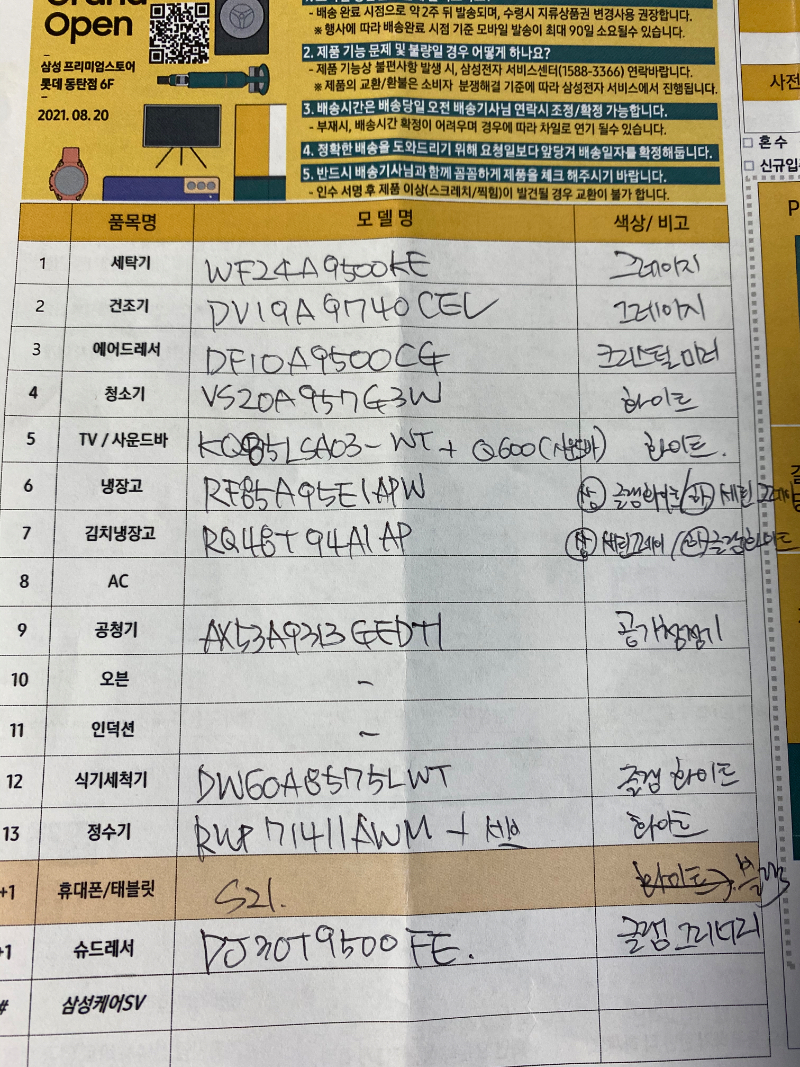 Grand
Open
삼성 프리미엄스토어
롯데 동탄점 6F
2021. 08. 20
- 배송 완료 시점으로 약 2주 뒤 발송되며, 수령시 지류상품권 변경사용 권장합니다.
※ 행사에 따라 배송완료 시점 기준 모바일 발송이 최대 90일 소요될수 있습니다.
2. 제품 기능 문제 및 불량일 경우 어떻게 하나요?
- 제품 기능상 불편사항 발생 시, 삼성전자 서비스센터(1588-3366) 연락바랍니다.
※ 제품의 교환/환불은 소비자 분쟁해결 기준에 따라 삼성전자 서비스에서 진행됩니다.
3. 배송시간은 배송당일 오전 배송기사님 연락시 조정/확정 가능합니다.
- 부재시, 배송시간 확정이 어려우며 경우에 따라 차일로 연기 될수 있습니다.
4. 정확한 배송을 도와드리기 위해 요청일보다 앞당겨 배송일자를 확정해둡니다.
5. 반드시 배송기사님과 함께 꼼꼼하게 제품을 체크 해주시기 바랍니다.
- 인수 서명 후 제품 이상(스크레치/찍힘)이 발견될 경우 교환이 불가 합니다.
사전
혼수
신규입
품목명 모델명 색상/ 비고
1 세탁기 WF24A9500KE 그레이지
2 건조기 DV19A9740CEV 그레이지
3 에어드레서 DF10A9500CG 크리스탈미러
4 청소기 VS20A957G3W 화이트
5 TV / 사운드바 KQ85LSA03-WT + Q600(사운드바) 화이트.
6 냉장고 RF85A95E1APW 상 글램화이트/하 새틴
7 김치냉장고 RQ48T94A1AP 상 새틴그레이/하 글램화이트
8 AC
9 공청기 AX53A9313GEDTI 공기청정기
10 오븐 -
11 인덕션 -
12 식기세척기 DW60A8575LWT 글램 화이트
13 정수기 RWP71411AWM + 화이트
+1 휴대폰/태블릿 S21. 화이트→
+1 슈드레서 DJ30T9500FE. 글램 그리너리
# 삼성케어SV